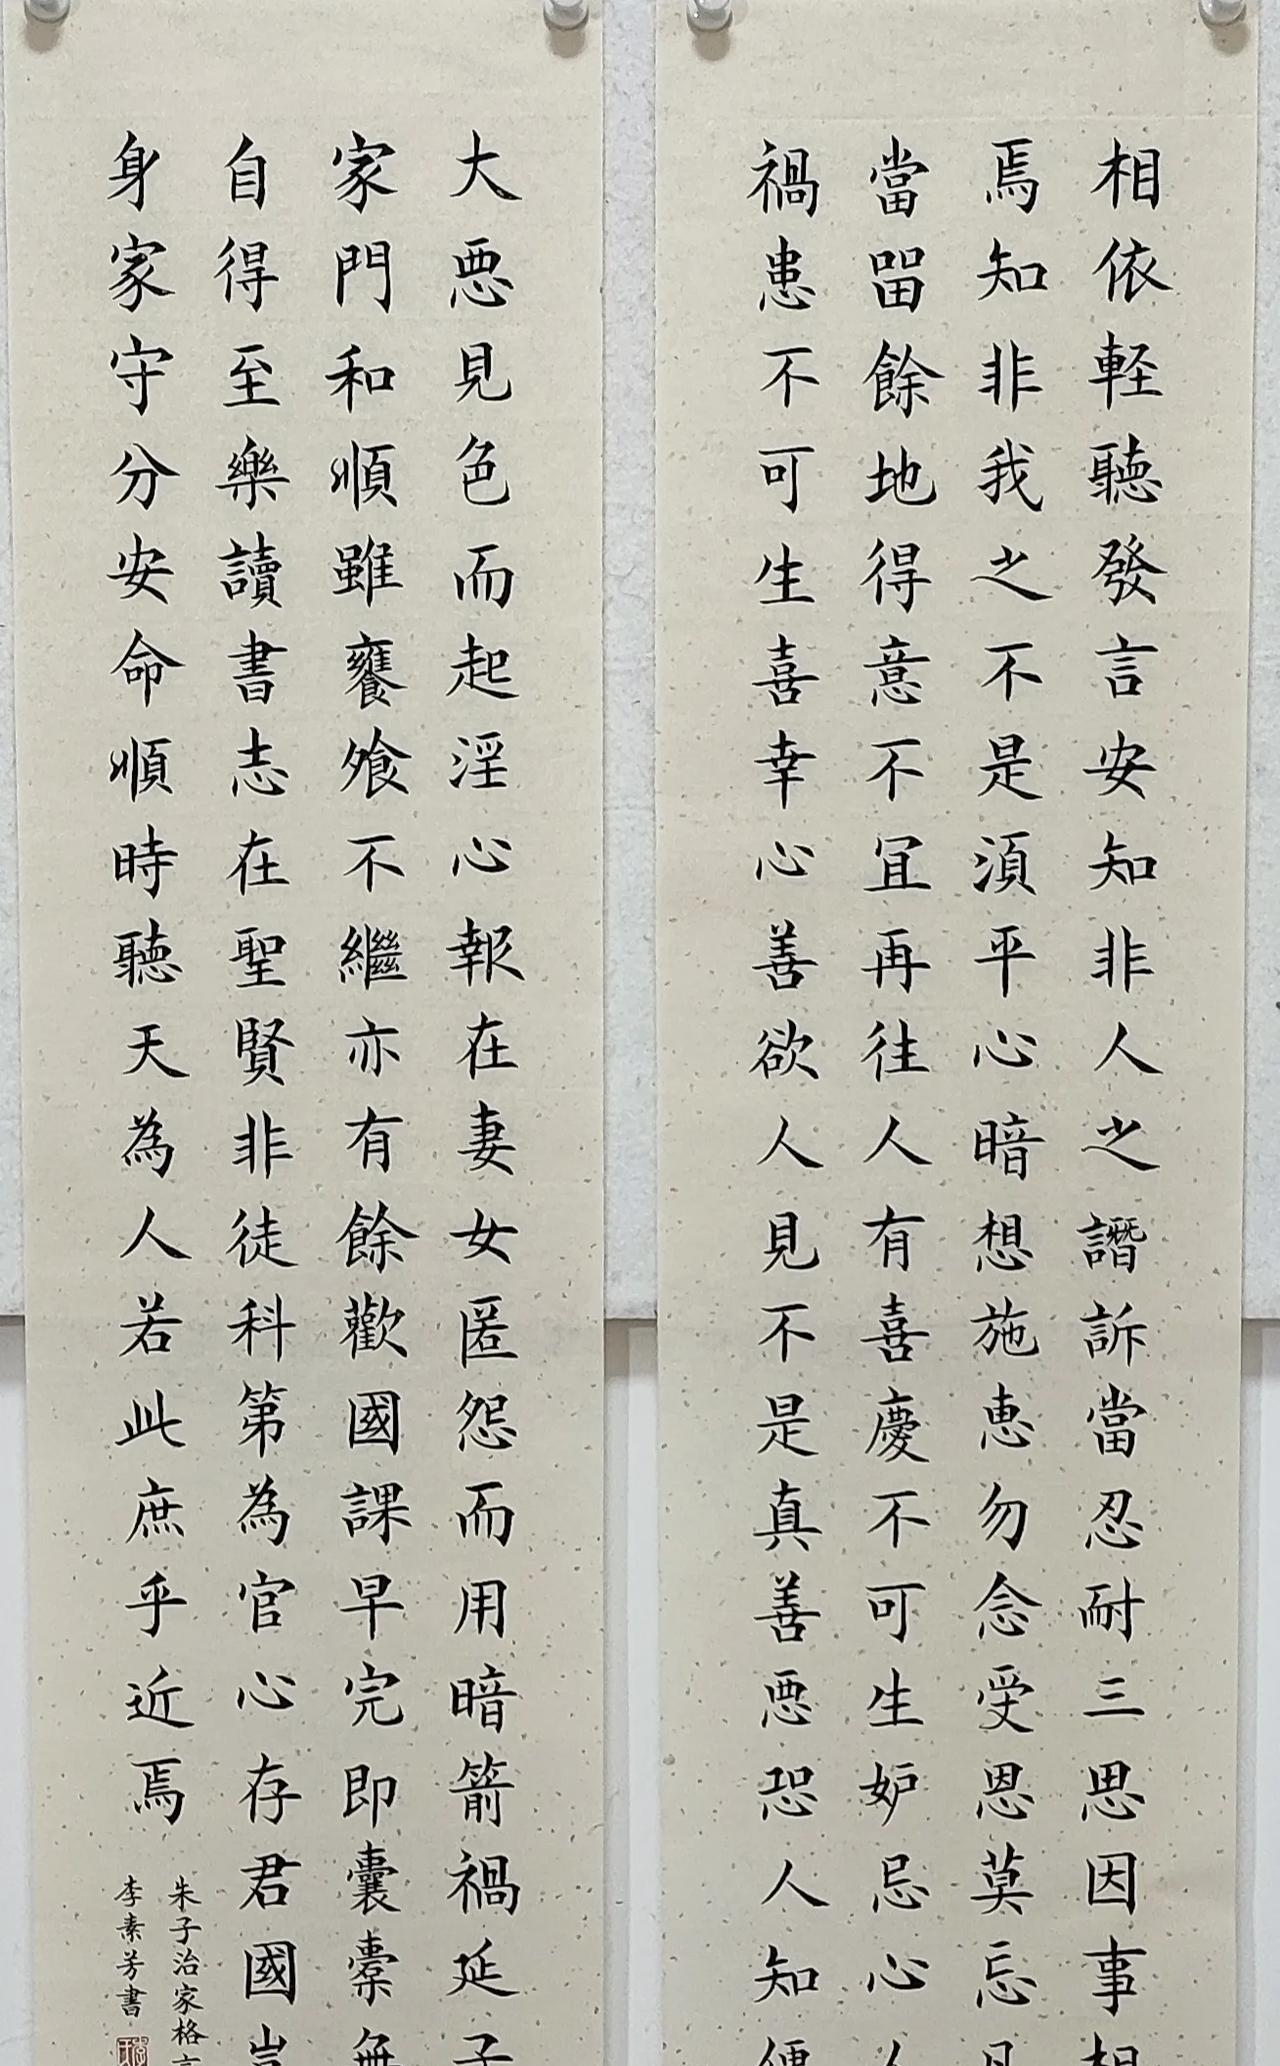 相依軽聽發言安知非人之譖訴當忍耐三思因事相
焉知非我之不是須平心暗想施恵勿念受恩莫忘凡
當留餘地得意不宜再往人有喜慶不可生妒忌心人
禍患不可生喜幸心善欲人見不是真善悪恐人知便
大悪見色而起淫心報在妻女匿怨而用暗箭禍延子
家門和順雖饔飧不繼亦有餘歡國課早完即囊橐無
自得至樂讀書志在聖賢非徒科第為官心存君國豈
身家守分安命順時聽天為人若此庶乎近焉
朱子治家格言
李素芳書